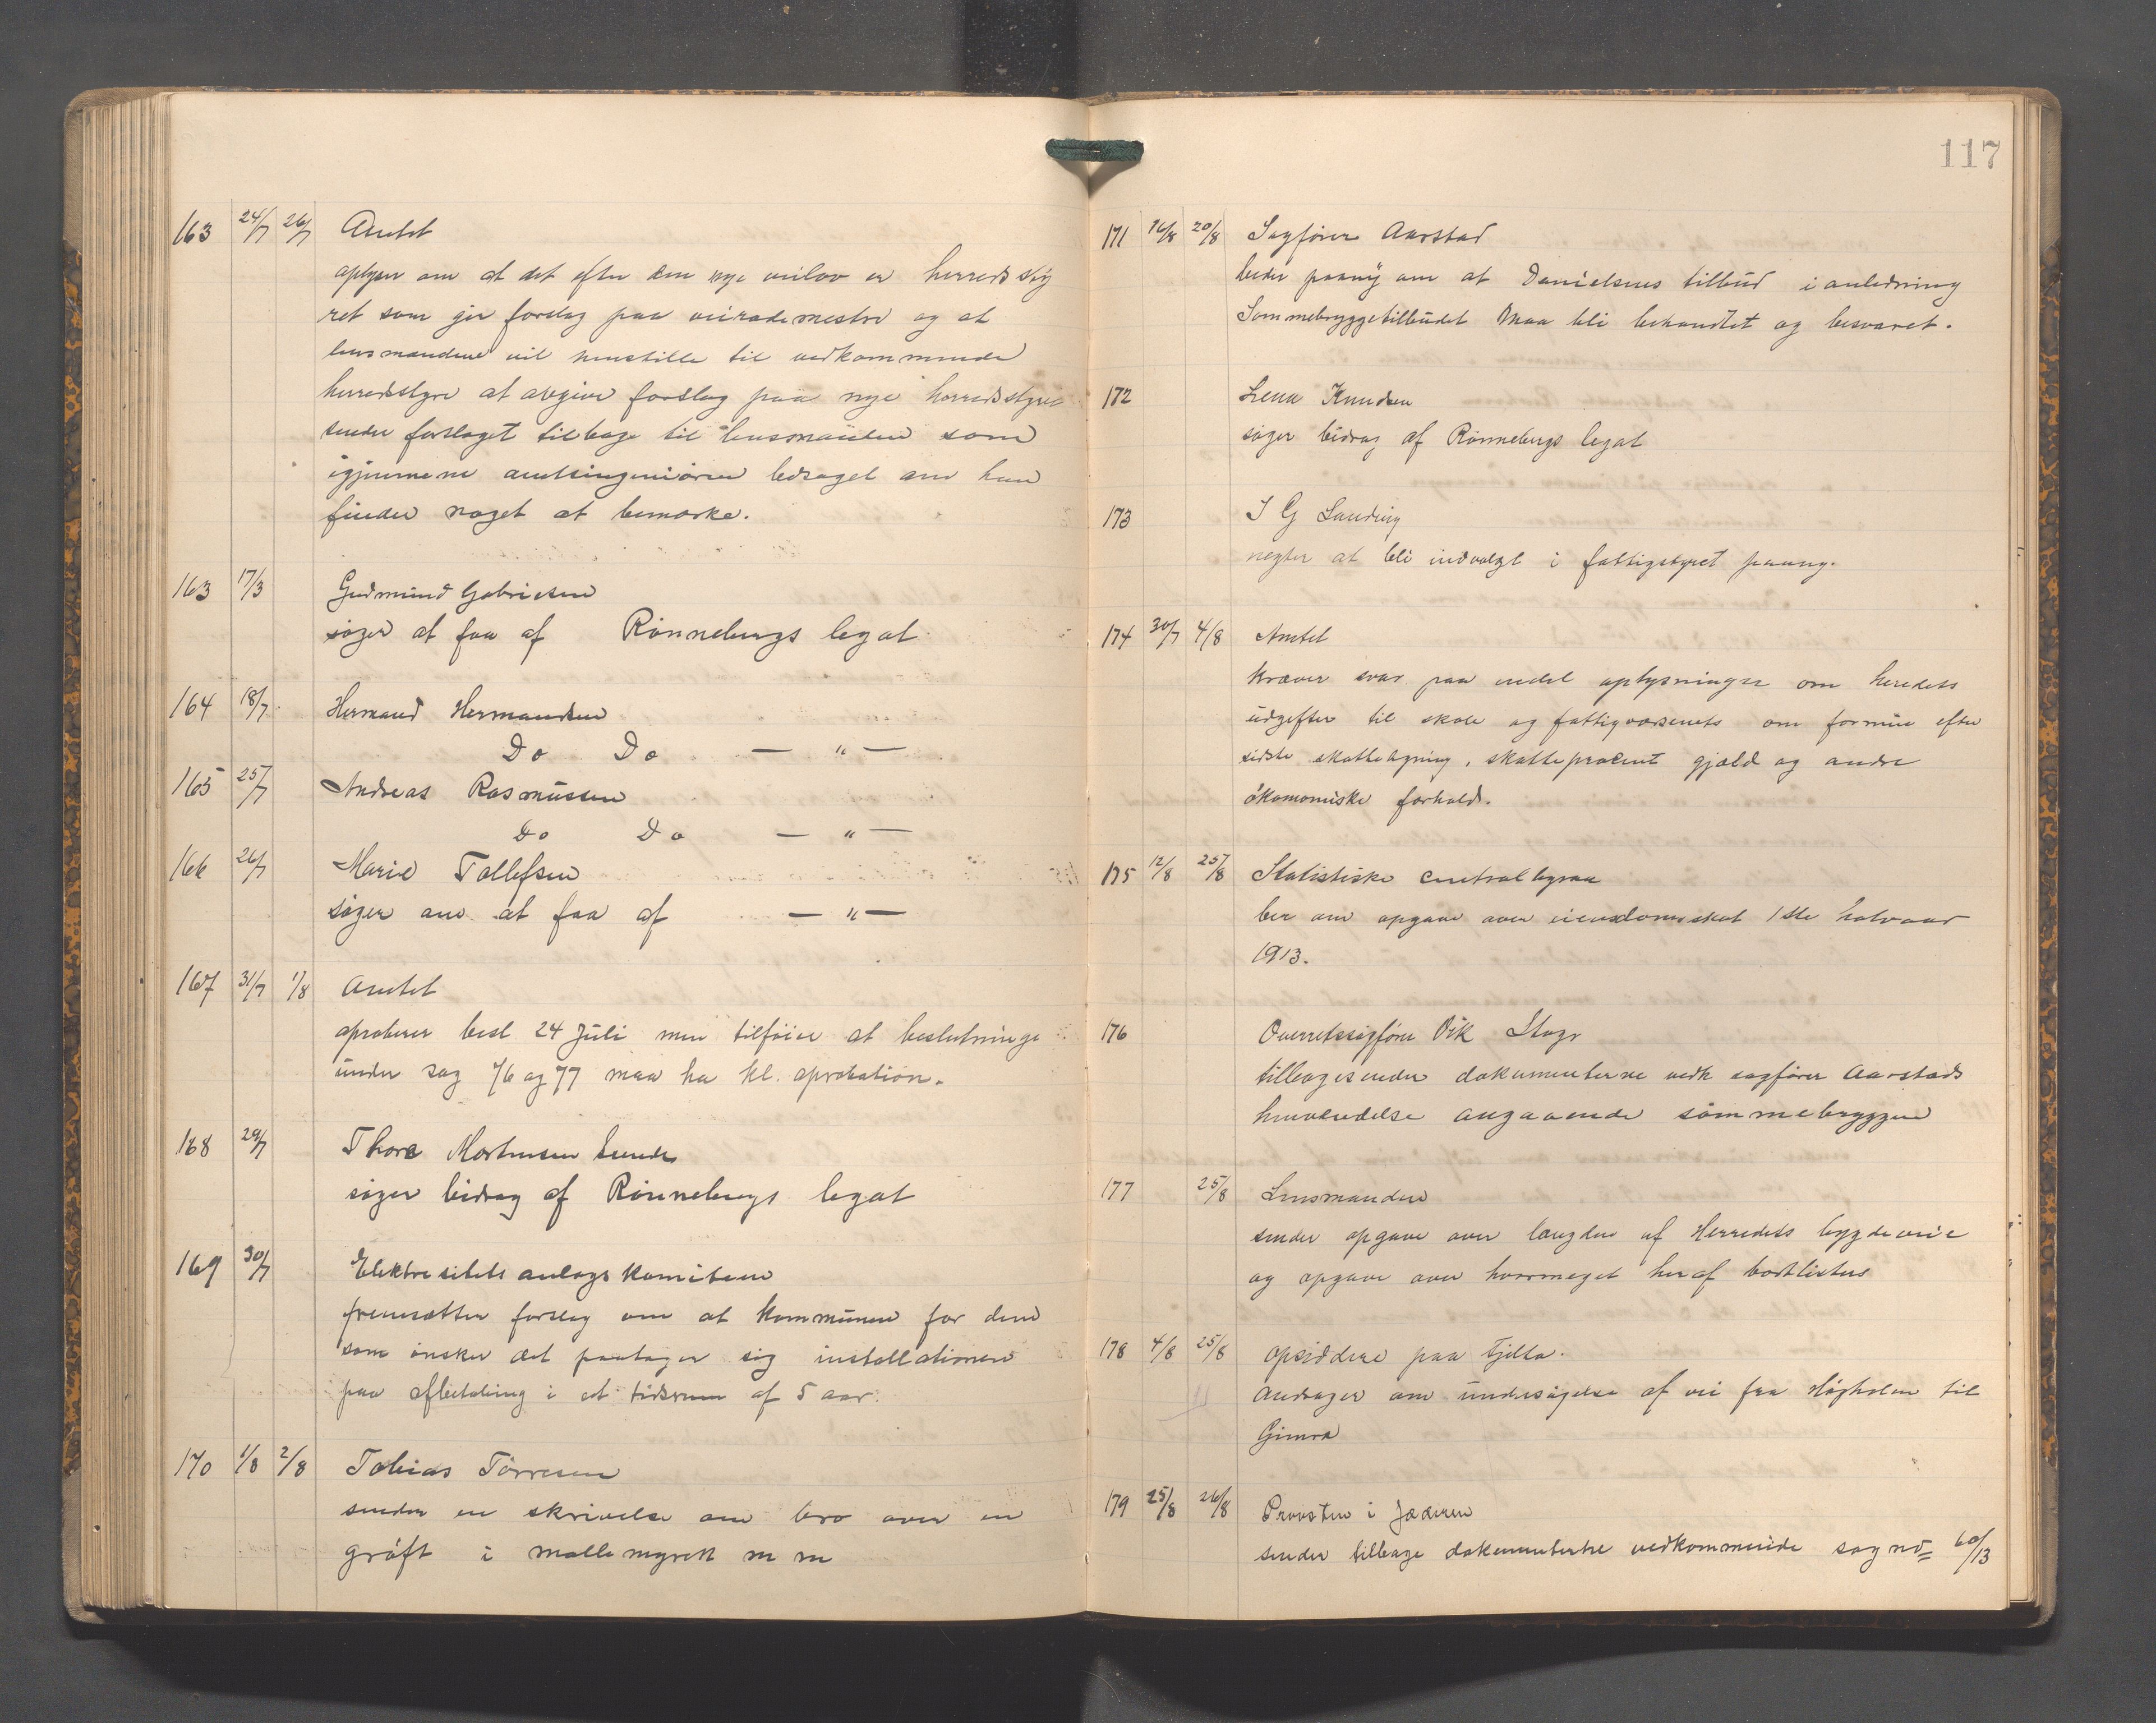 163 24/7 26/7 Amtet
oplyser om at det efter den nye veilov er herredssty
ret som gir forslag paa veirodemestre og at
lensmændene vil henstille til vedkommende
herredsstyre at avgive forslag paa nye herredsstyret
sender forslaget tilbage til lensmanden som
igjennem amtsingeniøren ledsaget om han
finder noget at bemærke.
163 17/3 Gudmund Gabrielsen
søger at faa af Rønnebergs legat
164 18/7 Hermand Hermandsen
Do Do — " —
165 25/7 Andreas Rasmussen
Do Do — " —
166 26/7 Marie Tollefsen
søger om at faa af — " —
167 31/7 1/8 Amtet
aproberer besl 24 Juli men tilføier at beslutninge
under sag 76 og 77 maa ha kl. aprobation.
168 29/7 Thore Mortensen Sunde
søger bidrag af Rønnebergs legat
169 30/7 Elektresitets anlægs komiteen
fremsætter forslag om at kommunen for dem
som ønsker det paatager sig installationen
paa afbetaling i et tidsrum af 5 aar.
170 1/8 2/8 Tobias Tørresen
sender en skrivelse om bro over en
grøft i mollemyren m m
117
171 16/8 20/8 Sagfører Aarstad
beder paany om at Danielsens tilbud i anledning
Sømmebryggetilbudet maa bli behandlet og besvaret.
172 Lena Knudsen
søger bidrag af Rønnebergs legat
173 I G Sandvig
negter at bli indvalgt i fattigstyret paany.
174 30/7 4/8 Amtet
kræver svar paa endel oplysninger om heredets
udgifter til skole og fattigvæsenets om formue efter
sidste skatteligning, skatteprocent gjæld og andre
økonomiske forhold.
175 12/8 25/8 Statistiske centralbyraa
ber om opgave over eiendomsskat 1ste halvaar
1913.
176 Overretssagfører Vik Stvgr
tilbagesender dokumenterne vedk sagfører Aarstads
henvendelse angaaende sømmebryggen
177 25/8 Lensmanden
sender opgave over længden af Herredets bygdeveie
og opgave over hvormeget heraf bortlistes
178 4/8 25/8 Opsiddere paa Tjelta.
Andrager om undersøgelse af vei fra Høgholen til
Gimra
179 25/8 26/8 Provsten i Jæderen
sender tilbage dokumenterne vedkommende sag no 60/13